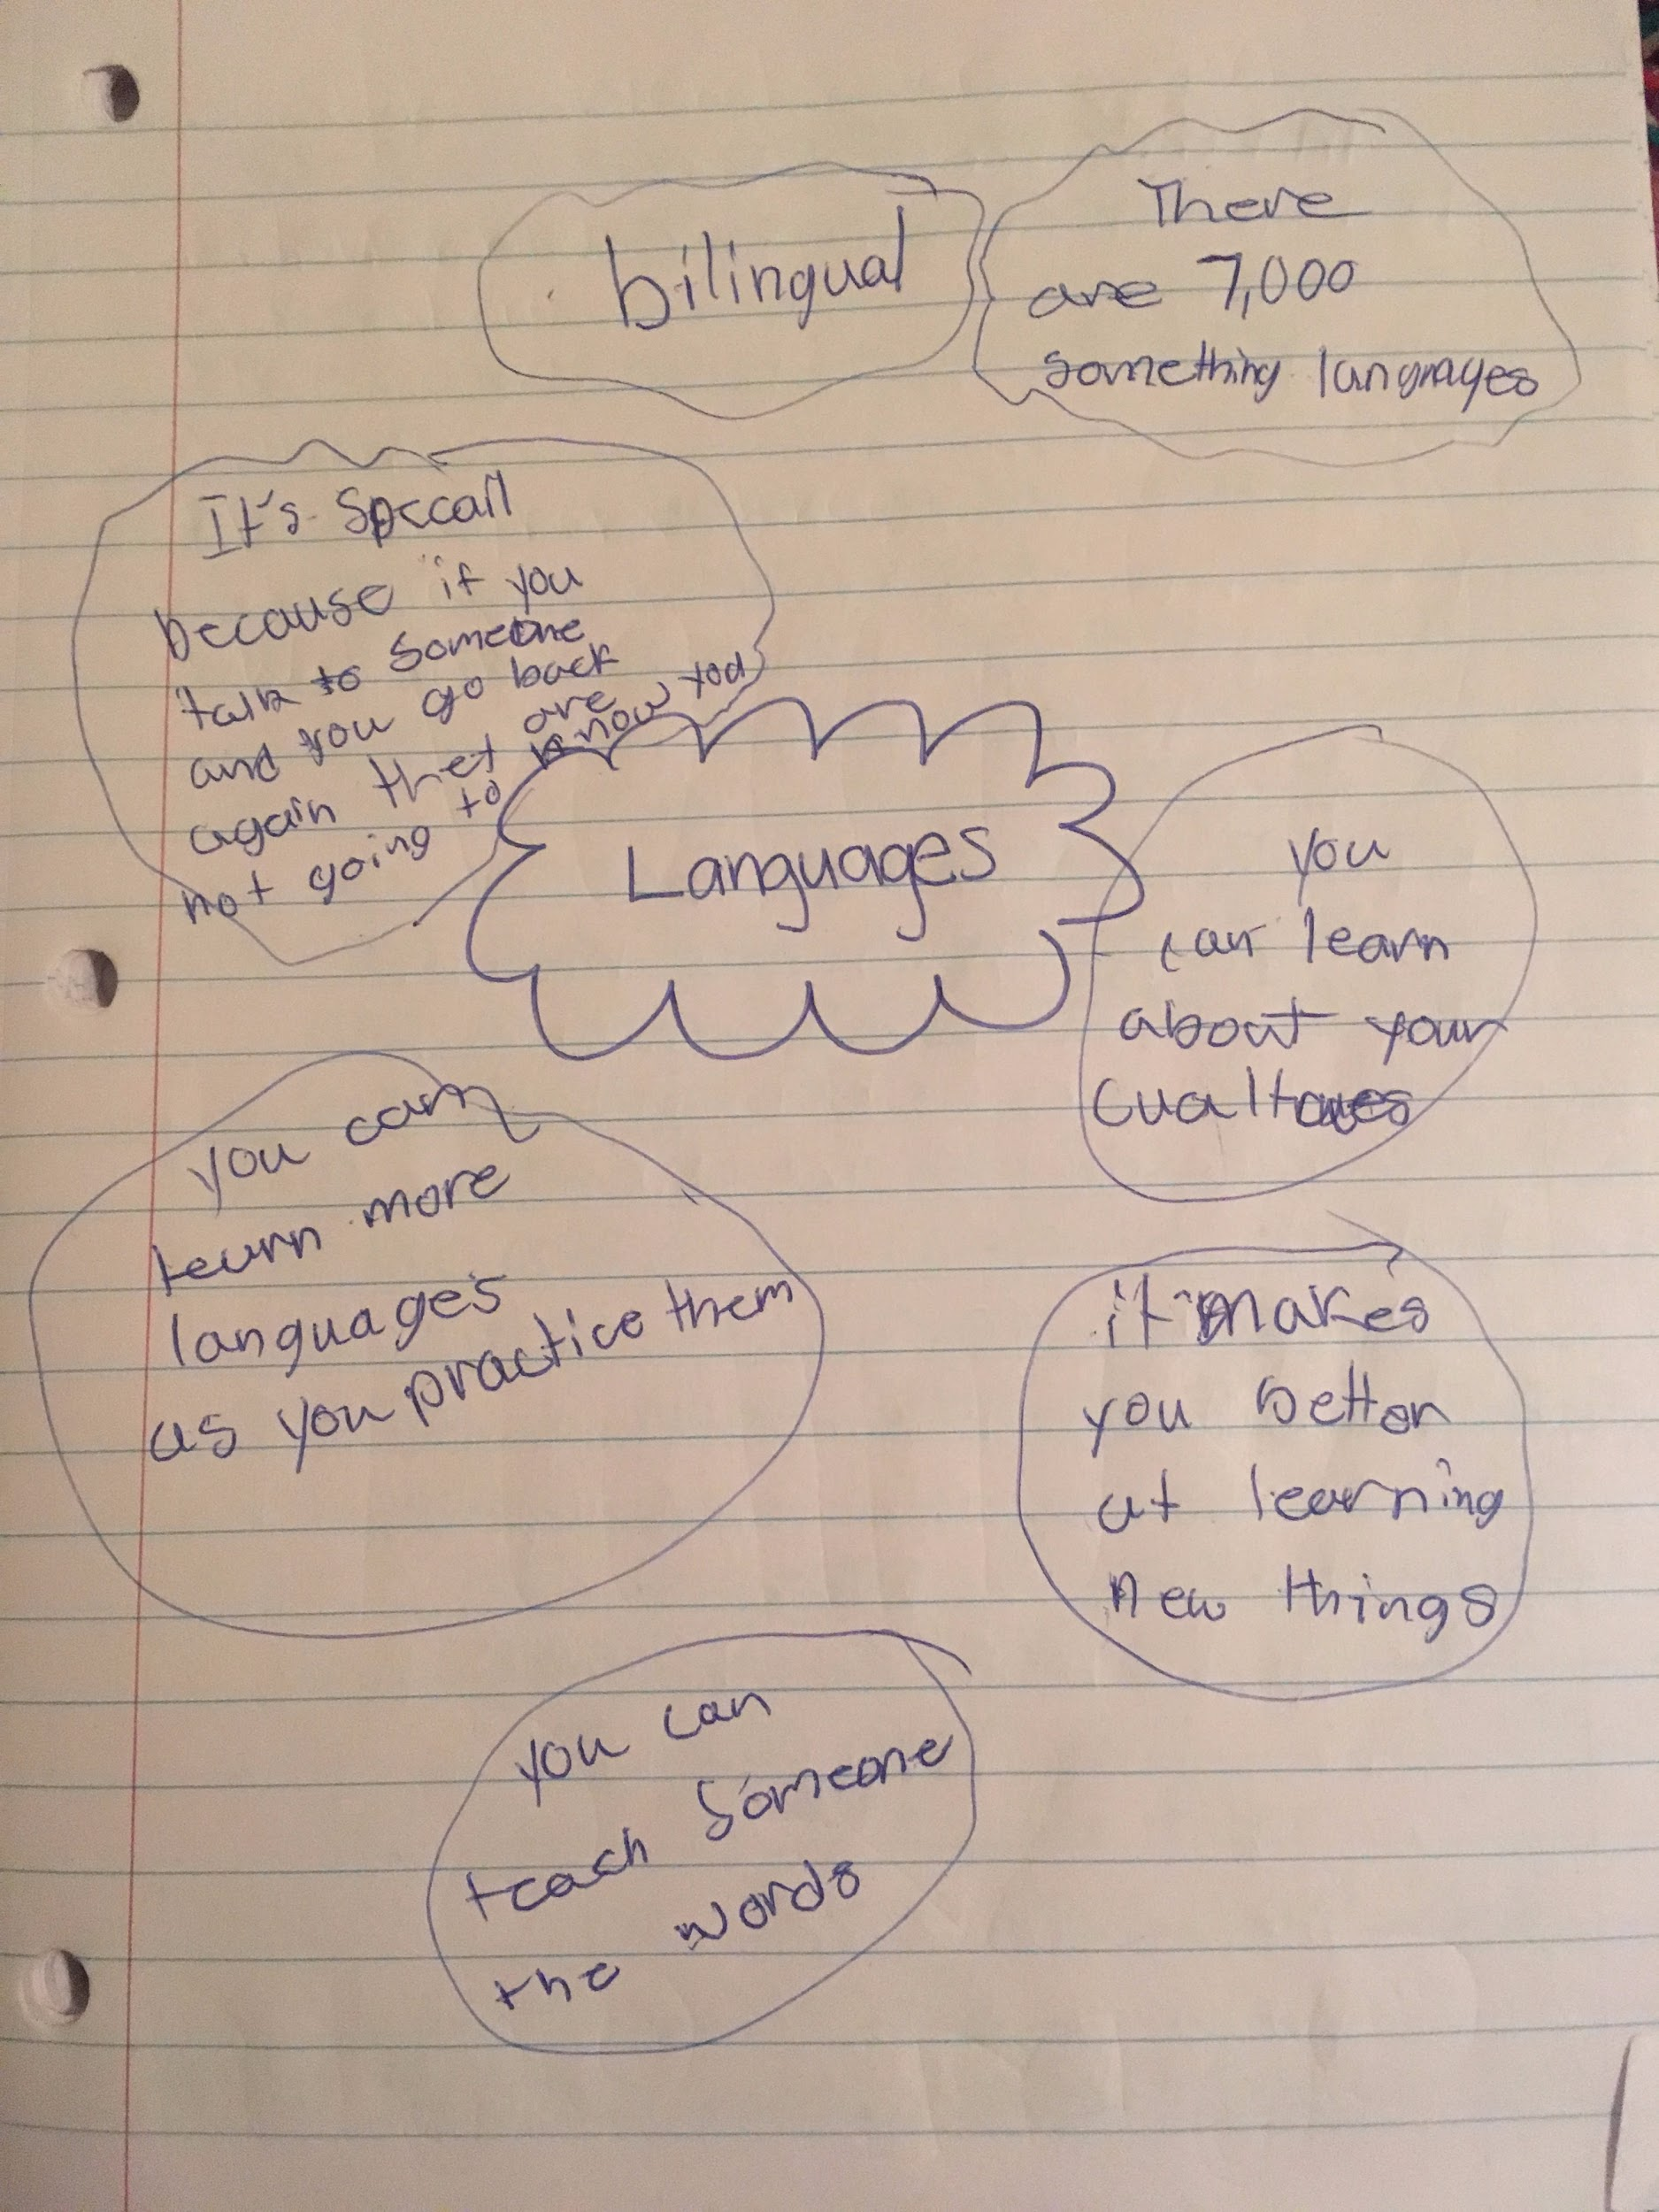 bilingual
There
are 7,000
something languages
It's Speccall
because if you
talk to someone
and you go back
again thet are
not going to know you
Languages
you
can learn
about your
you can
learn more
languages
as you practice them
it makes
you better
at learning
new things
you can
teach someone
the words